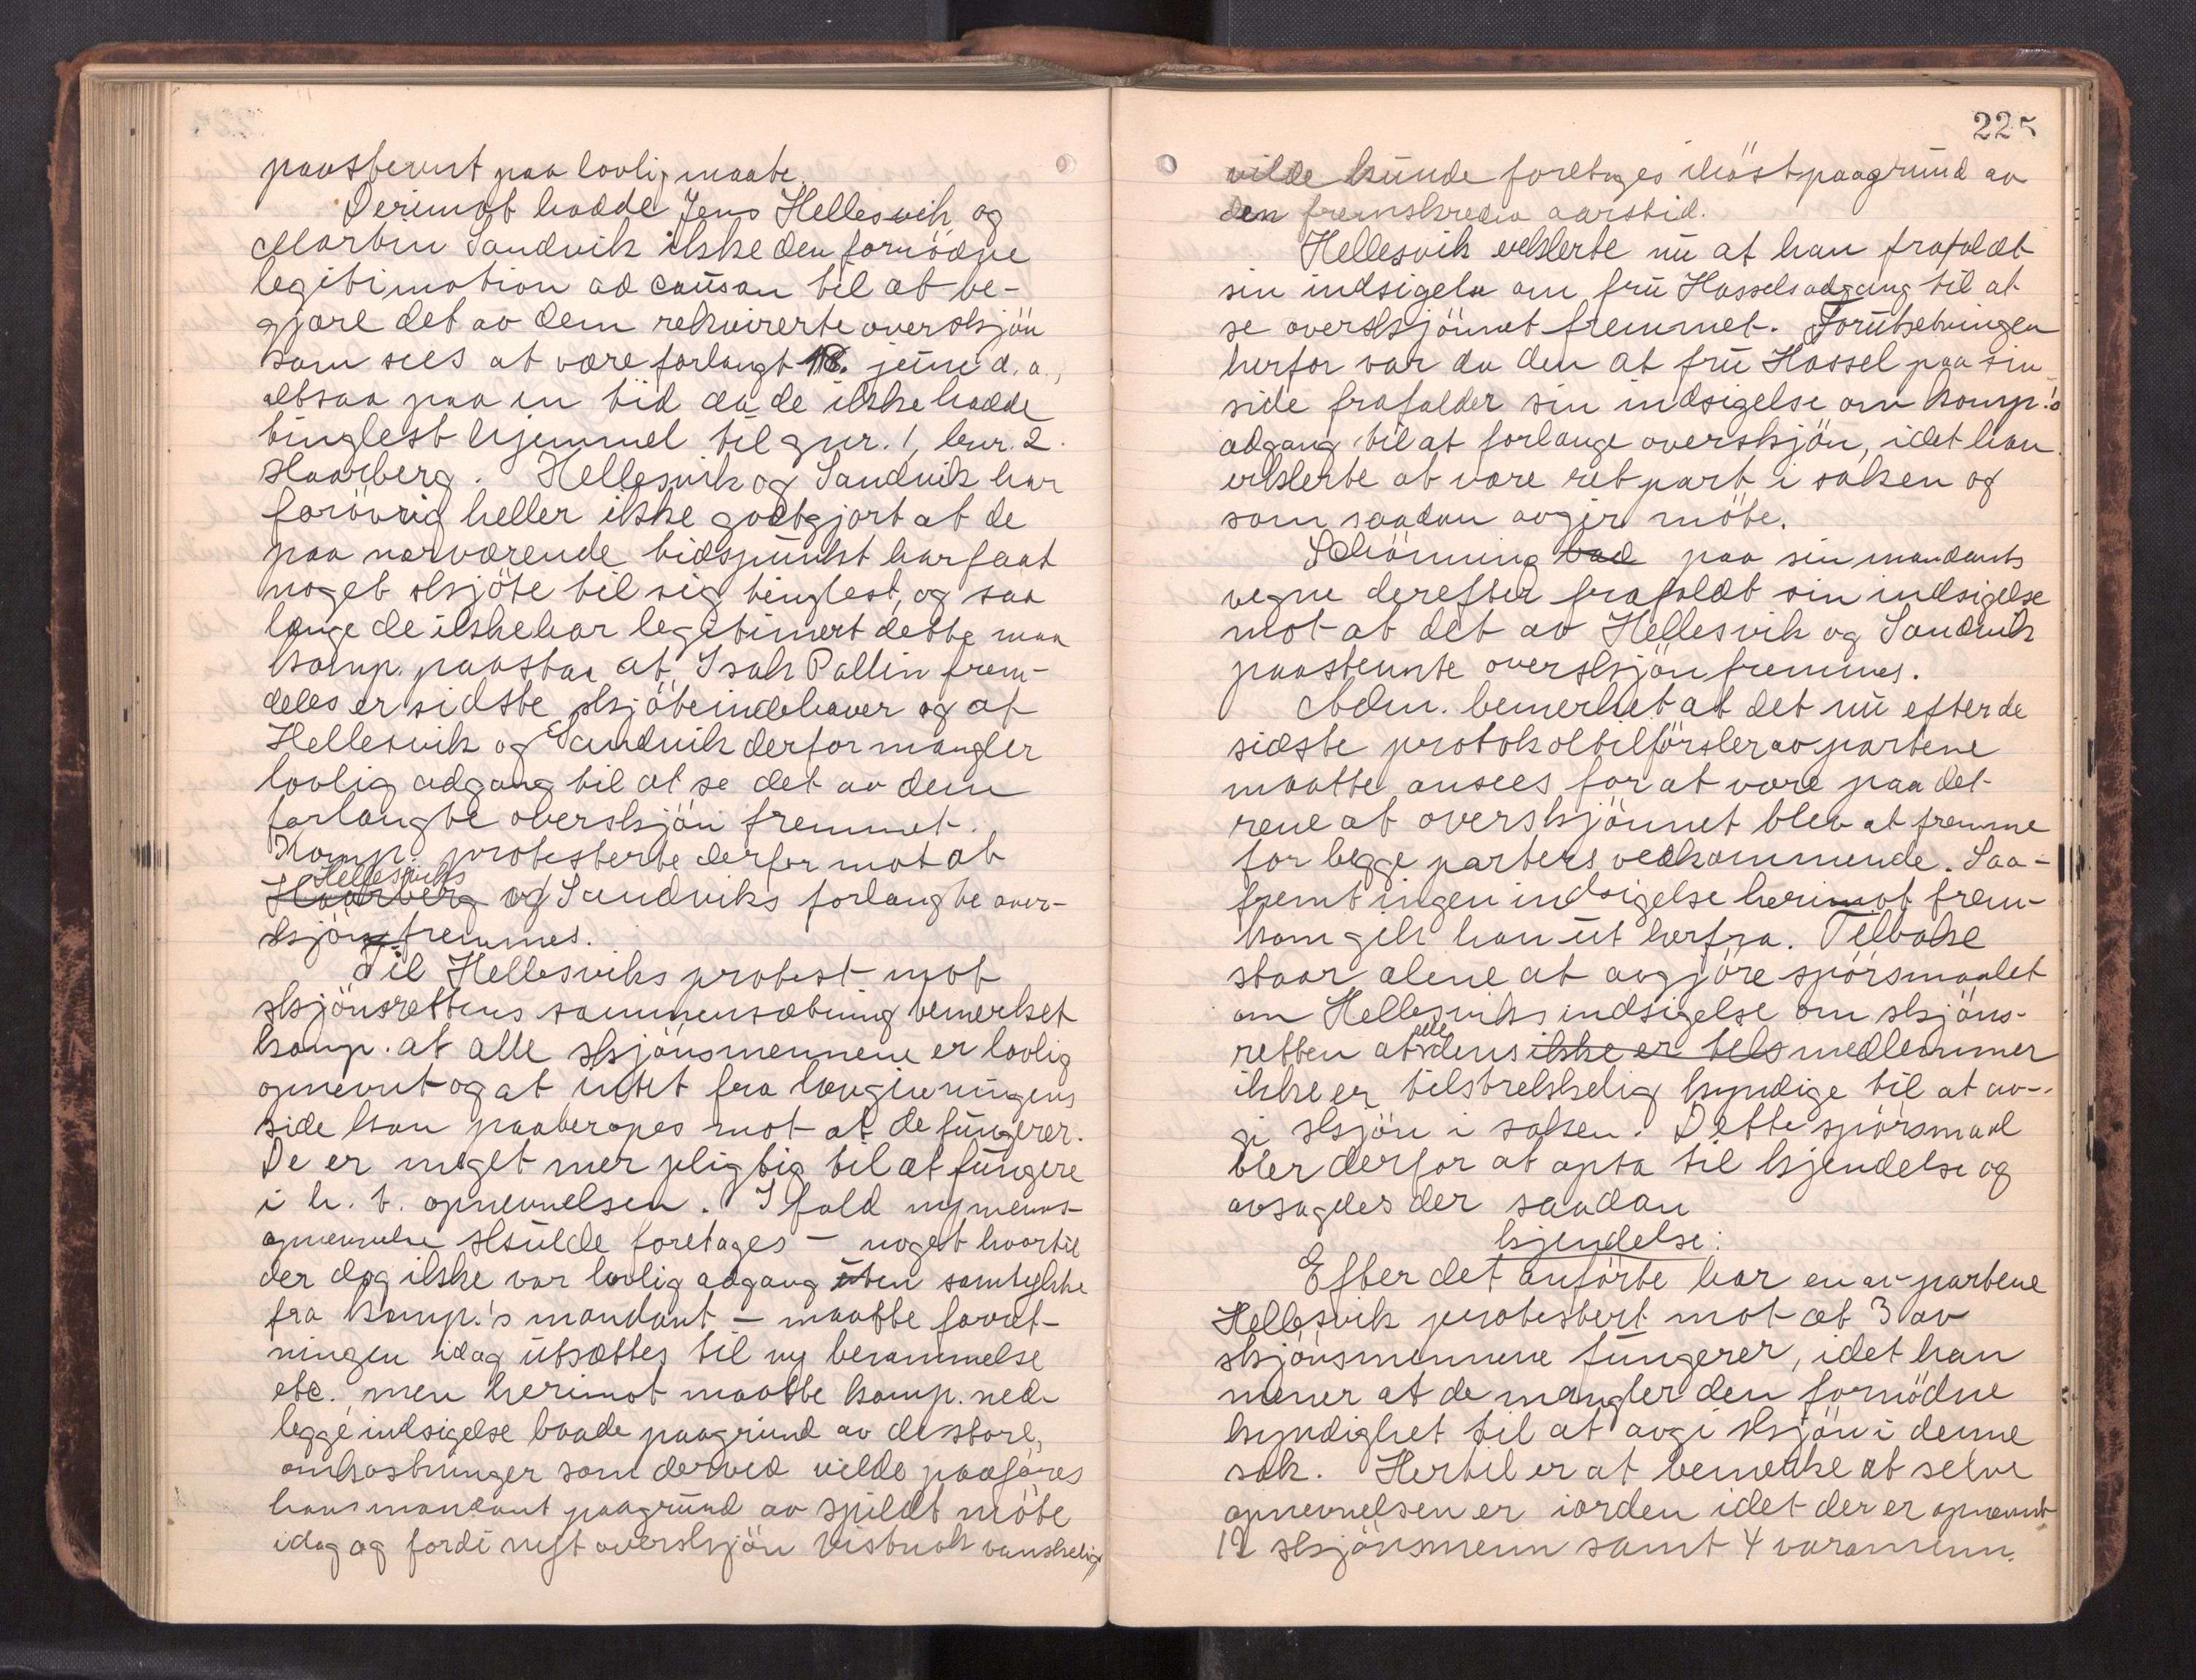 paastevnt paa lovlig maate.
Derimot hadde Jens Hellesvik og
Martin Sandvik ikke den fornödne
legitimation ad causam til at be-
gjære det av dem rekvirerte overskjön
som sees at være forlangt 18. juni d. a.,
altsaa paa en tid da de ikke hadde
tinglest hjemmel til gnr. 1, bnr. 2
Haarberg. Hellesvik og Sandvik har
forövrig heller ikke godtgjort at de
paa nærværende tidspunkt har faat
noget skjöte til sig tinglest, og saa
længe de ikke har legitimert dette maa
komp. paastaa at Isak Pallin frem-
deles er sidste skjöteindehaver og at
Hellesvik og Sandvik derfor mangler
lovlig adgang til at se det av dem
forlangte overskjön fremmet.
Komp. protesterte derfor mot at
Hellesviks
Haarberg og Sandviks forlangte over-
skjön fremmes.
Til Hellesviks protest mot
skjönsrettens sammensætning bemerket
komp. at alle skjönsmennene er lovlig
opnevnt og at intet fra lovgivningens
side kan paaberopes mot at de fungerer.
De er meget mer pligtig til at fungere
i h. t. opnevnelsen. I fald ny mens-
opnevnelse skulde foretages – noget hvortil
der dog ikke var lovlig adgang uten samtykke
fra komp.'s mandant – maatte forret-
ningen idag utsættes til ny berammelse
etc. men herimot maatte komp. ned-
legge indsigelse baade paagrund av de store
omkostninger som derved vilde paaføres
hans mandant paagrund av spildt möte
idag og fordi nyt overskjön vistnok vanskelig
225
vilde kunde foretages ihöst paagrund av
den fremskredne aarstid.
Hellesvik erklerte nu at han frafaldt
sin indsigelse om fru Hassels adgang til at
se overskjönnet fremmet. Forutsetningen
herfor var da den at fru Hassel paa sin
side frafalder sin indsigelse om komp.'s
adgang til at forlange overskjön, idet han
erklerte at være ret part i saken og
som saadan avgir möte.
Schönning bad paa sin mandants
vegne derefter frafaldt sin indsigelse
mot at det av Hellesvik og Sandvik
paastevnte overskjön fremmes.
Adm. bemerket at det nu efter de
sidste protokoltilförsler av partene
maatte ansees for at være paa det
rene at overskjönnet blev at fremme
for begge parters vedkommende. Saa-
fremt ingen indsigelse herimot frem-
kom gik han ut herfra. Tilbake
staar alene at avgjöre spörsmaalet
om Hellesviks indsigelse om skjöns-
retten at alle dens ikke er tels medlemmer
ikke er tilstrekkelig kyndige til at av-
gi skjön i saken. Dette spörsmaal
blev derfor at opta til kjendelse og
avsagdes der saadan
kjendelse:
Efter det anförte har en av partene
Hellesvik protestert mot at 3 av
skjönsmennene fungerer, idet han
mener at de mangler den fornödne
kyndighet til at avgi skjön i denne
sak. Hertil er at bemerke at selve
opnevnelsen er iorden idet der er opnevnt
12 skjönsmenn samt 4 varamenn.